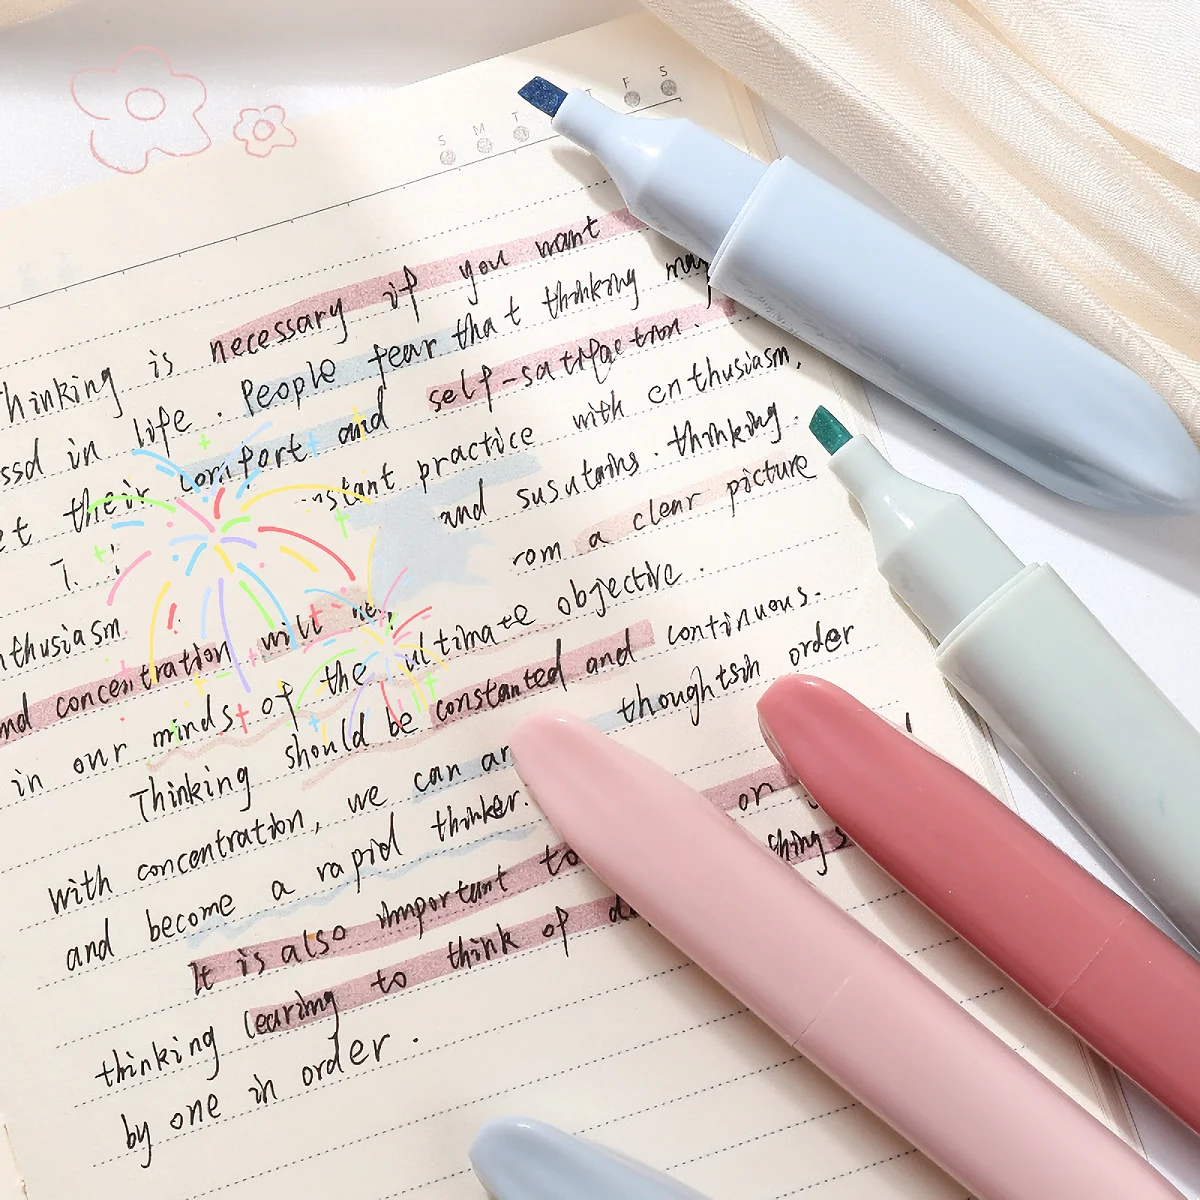 S M T T F S
Thinking is necessary if you want
ssd in life. People fear that thinking may
et their comfort and self-satifaction.
T. instant practice with enthusiasm,
nthusiasm and susutains. thinking.
and concentration will rom a clear picture
in our minds of the ultimate objective.
Thinking should be constanted and continuous.
with concentration, we can thoughtsin order
and become a rapid thinker.
It is also important to on
thinking learing to think of things
by one in order.